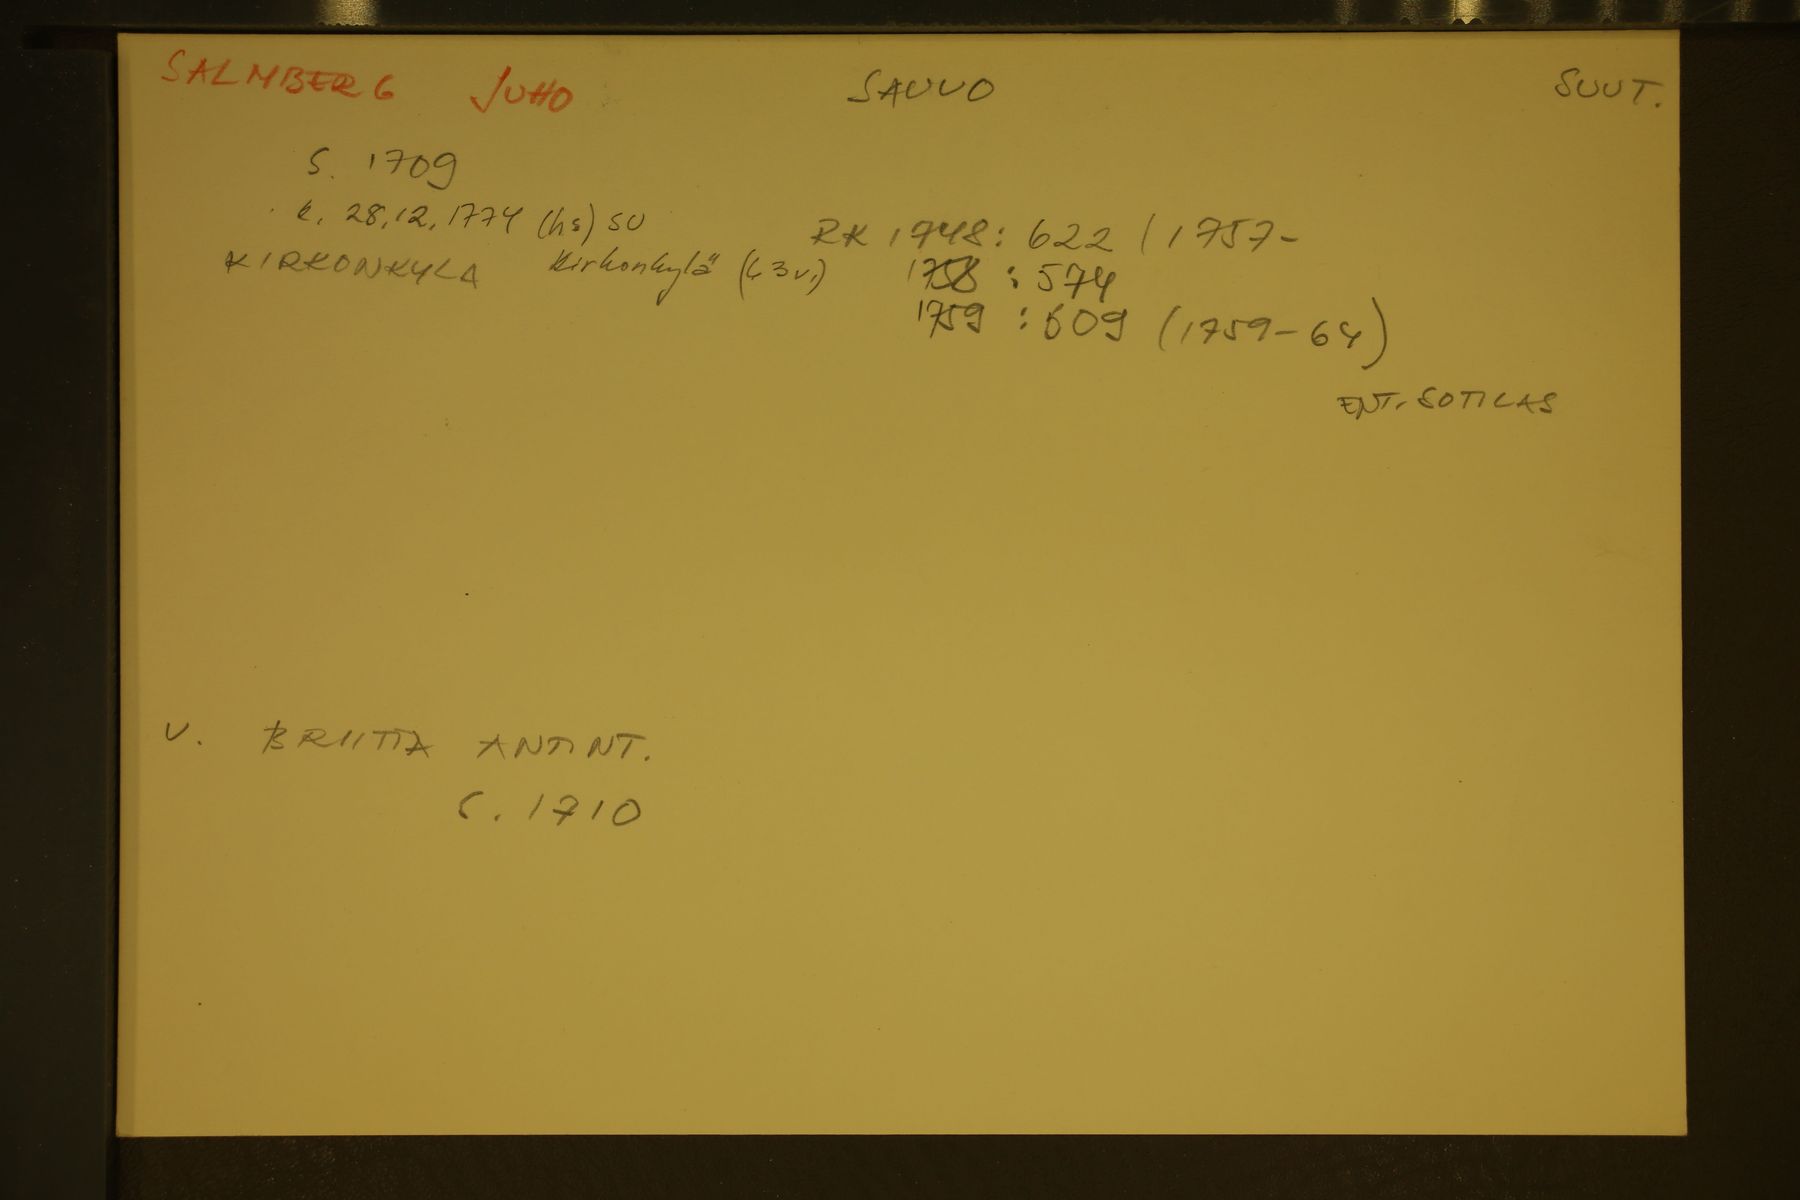 SALMBERG JUHO SAUVO SUUT.
S. 1709
k. 28.12.1774 (hs) SU
RK 1748: 622 / 1757-
KIRKONKYLA Kirkonkylä 1758 : 574
1759 : 609 (1759-64)
ENT. SOTILAS
V. BRIITTA ANTINT.
S. 1710